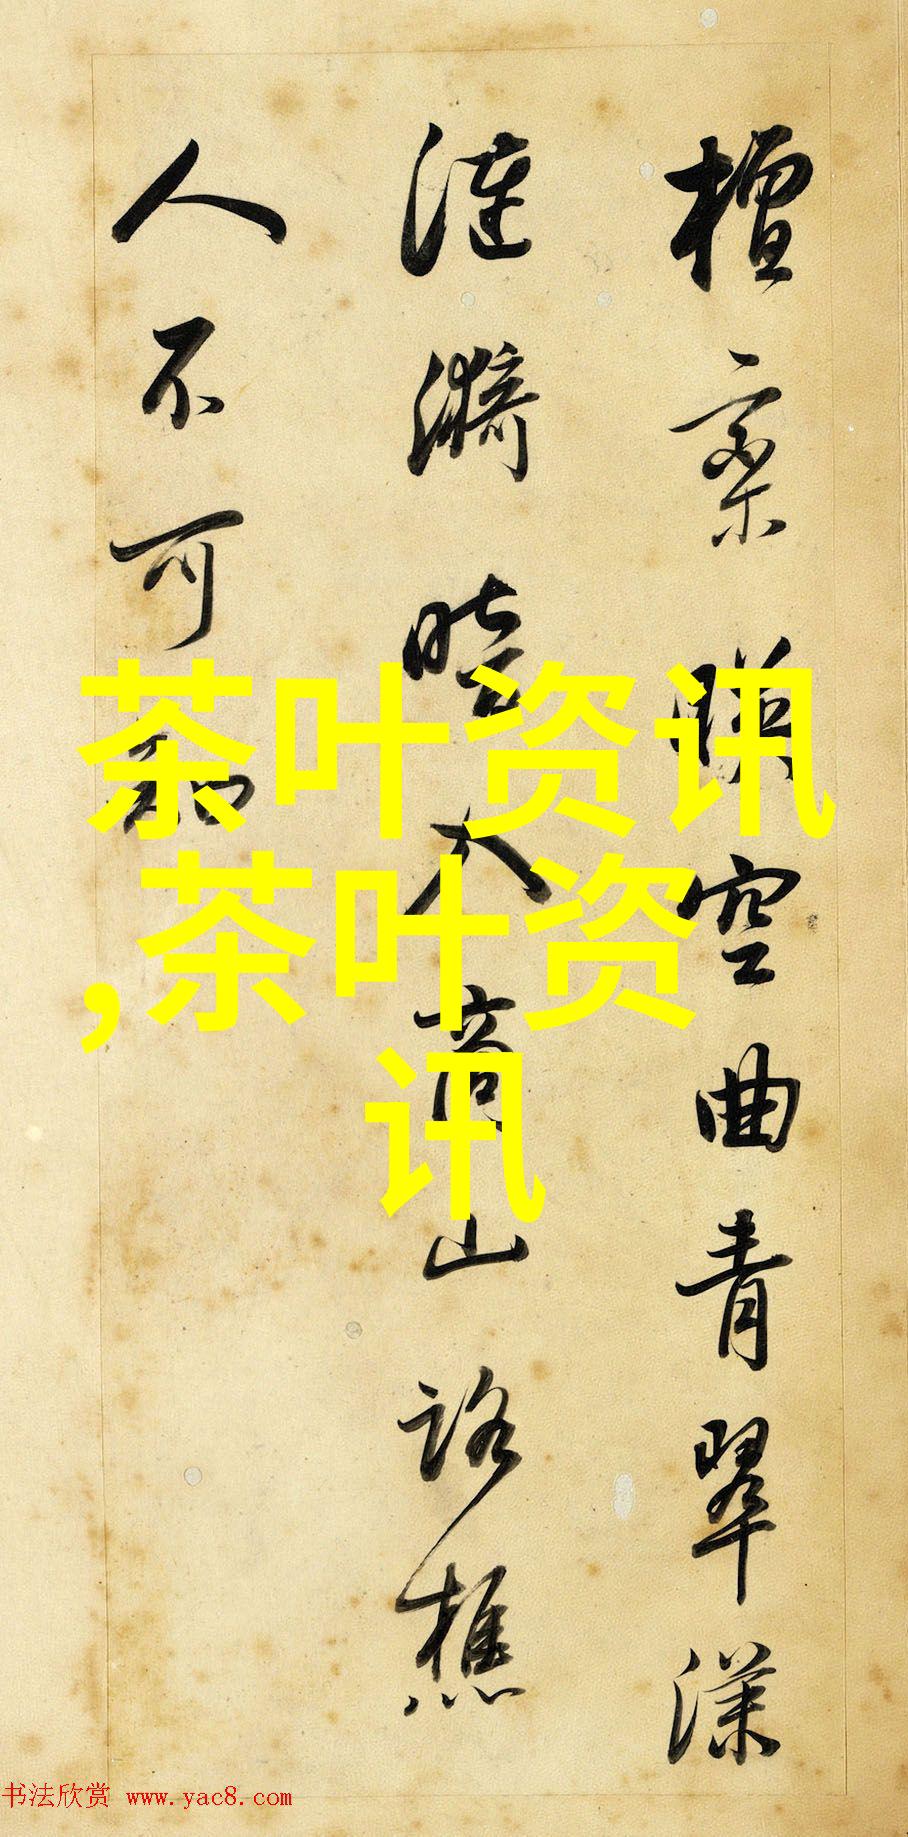 檀欒暎空曲青翠漾
漣漪暗入商山路樵
人不可知
茶叶资讯
,茶叶资
讯
书法欣赏 www.yac8.com